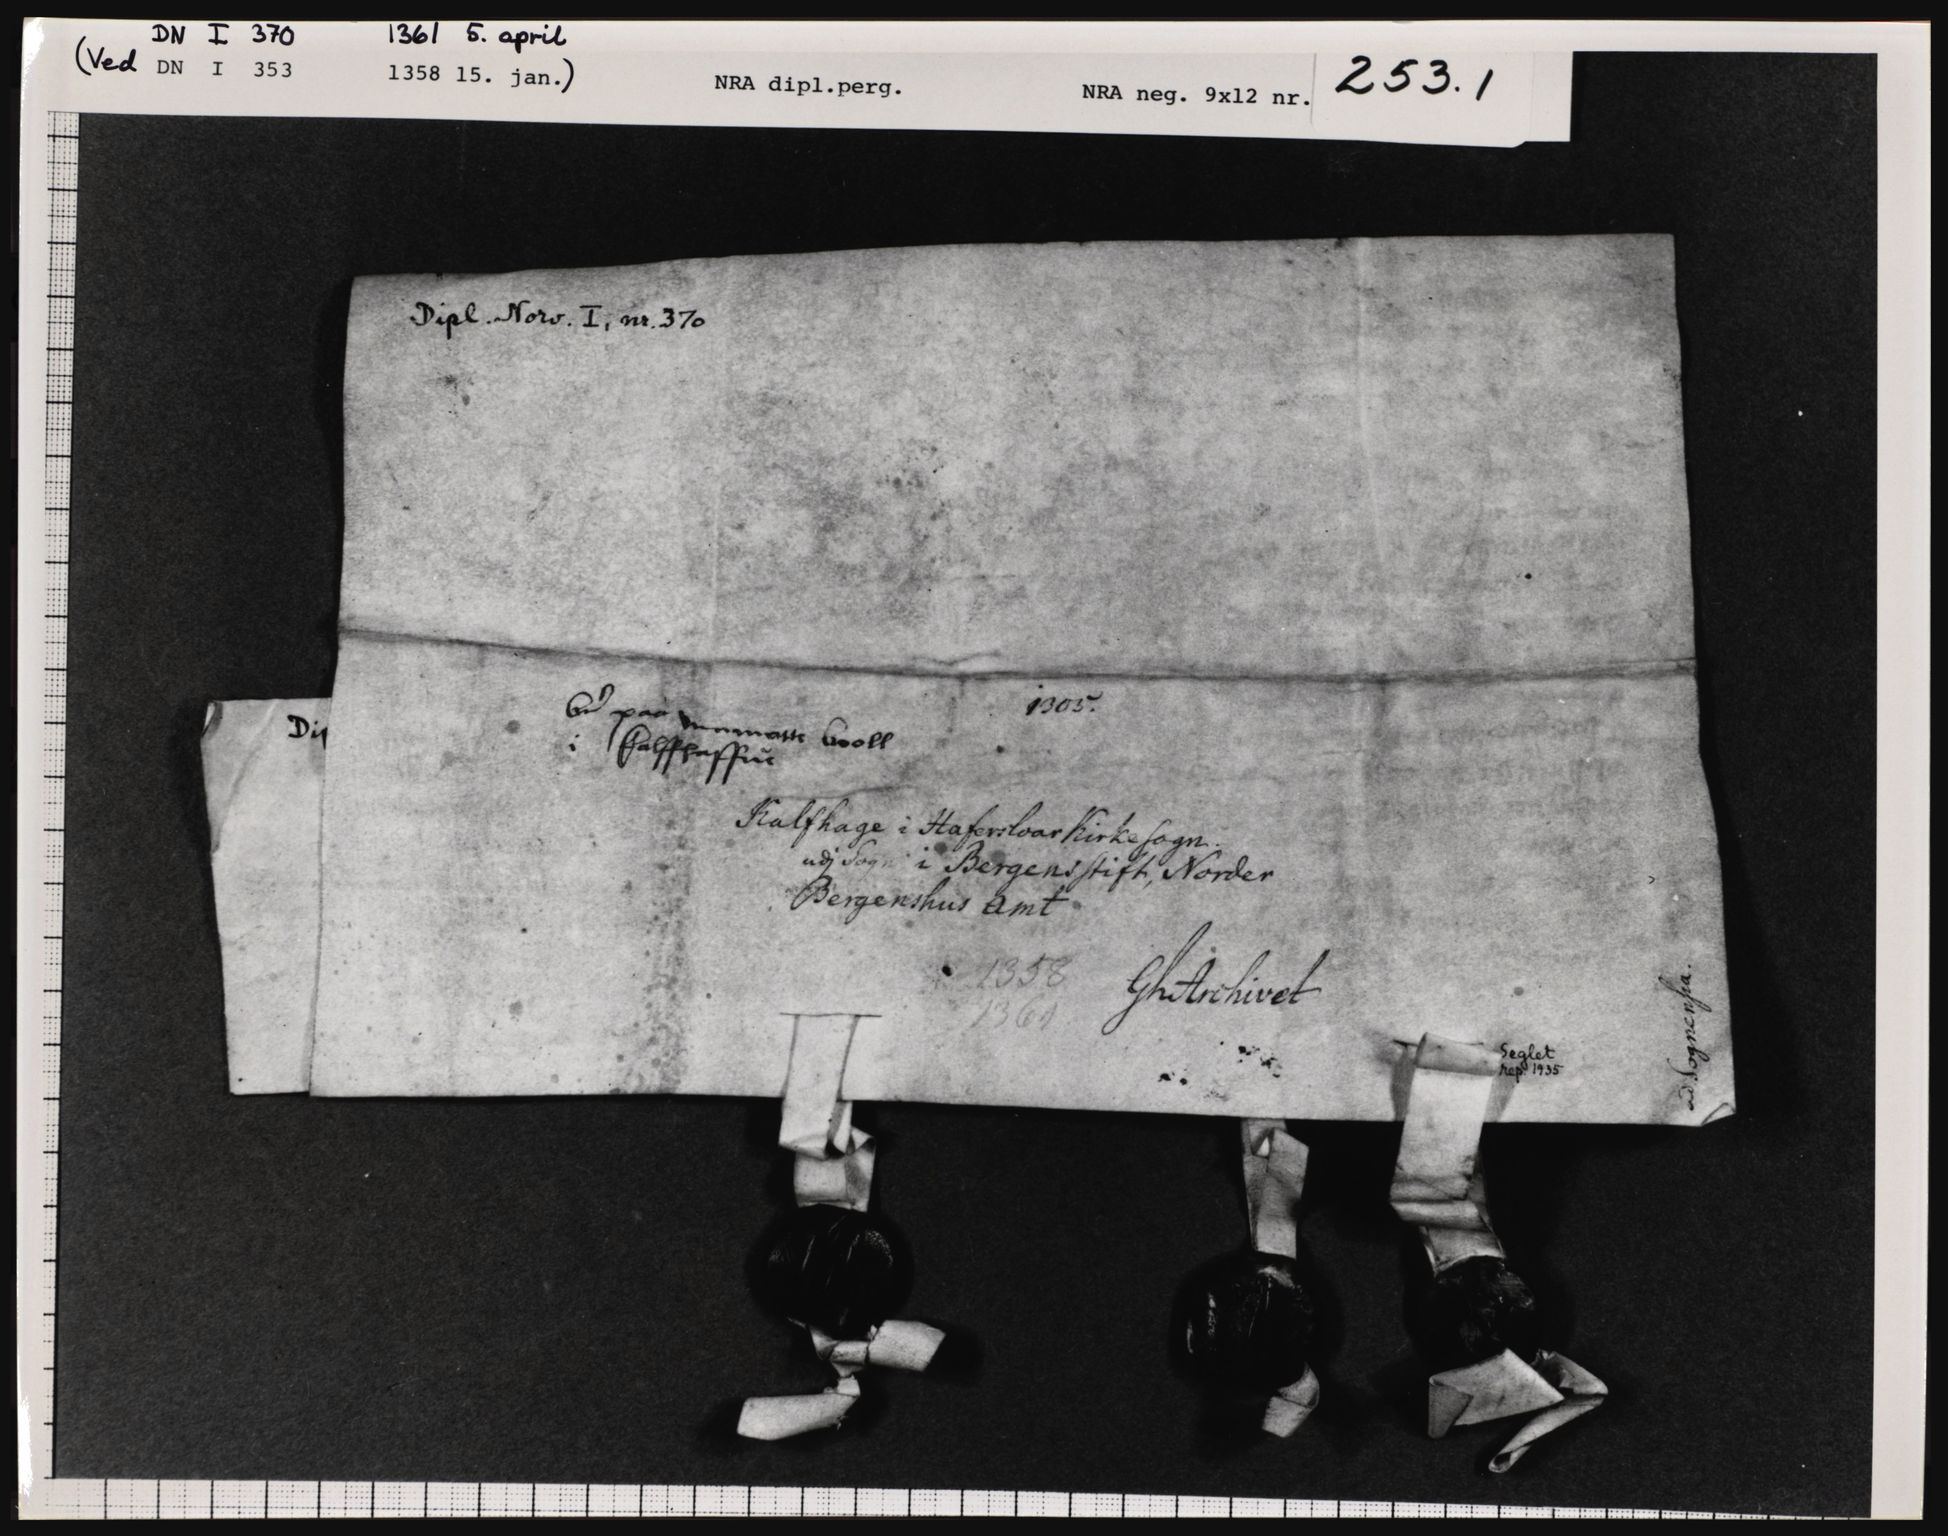 DN I 370 1361 5. april
(Ved DN I 353 1358 15. jan.)
NRA dipl.perg.
NRA neg. 9x12 nr. 253.1
Dipl. Norv. I, nr. 370
Dip
paa
i
1305.
Kalfhage i Hafersloar Kirke sogn.
udj Sogn i Bergens stift, Norder
Bergenshus Amt
1358
1361
Gh Archivet
Seglet
rep. 1935
ad Sognensia.